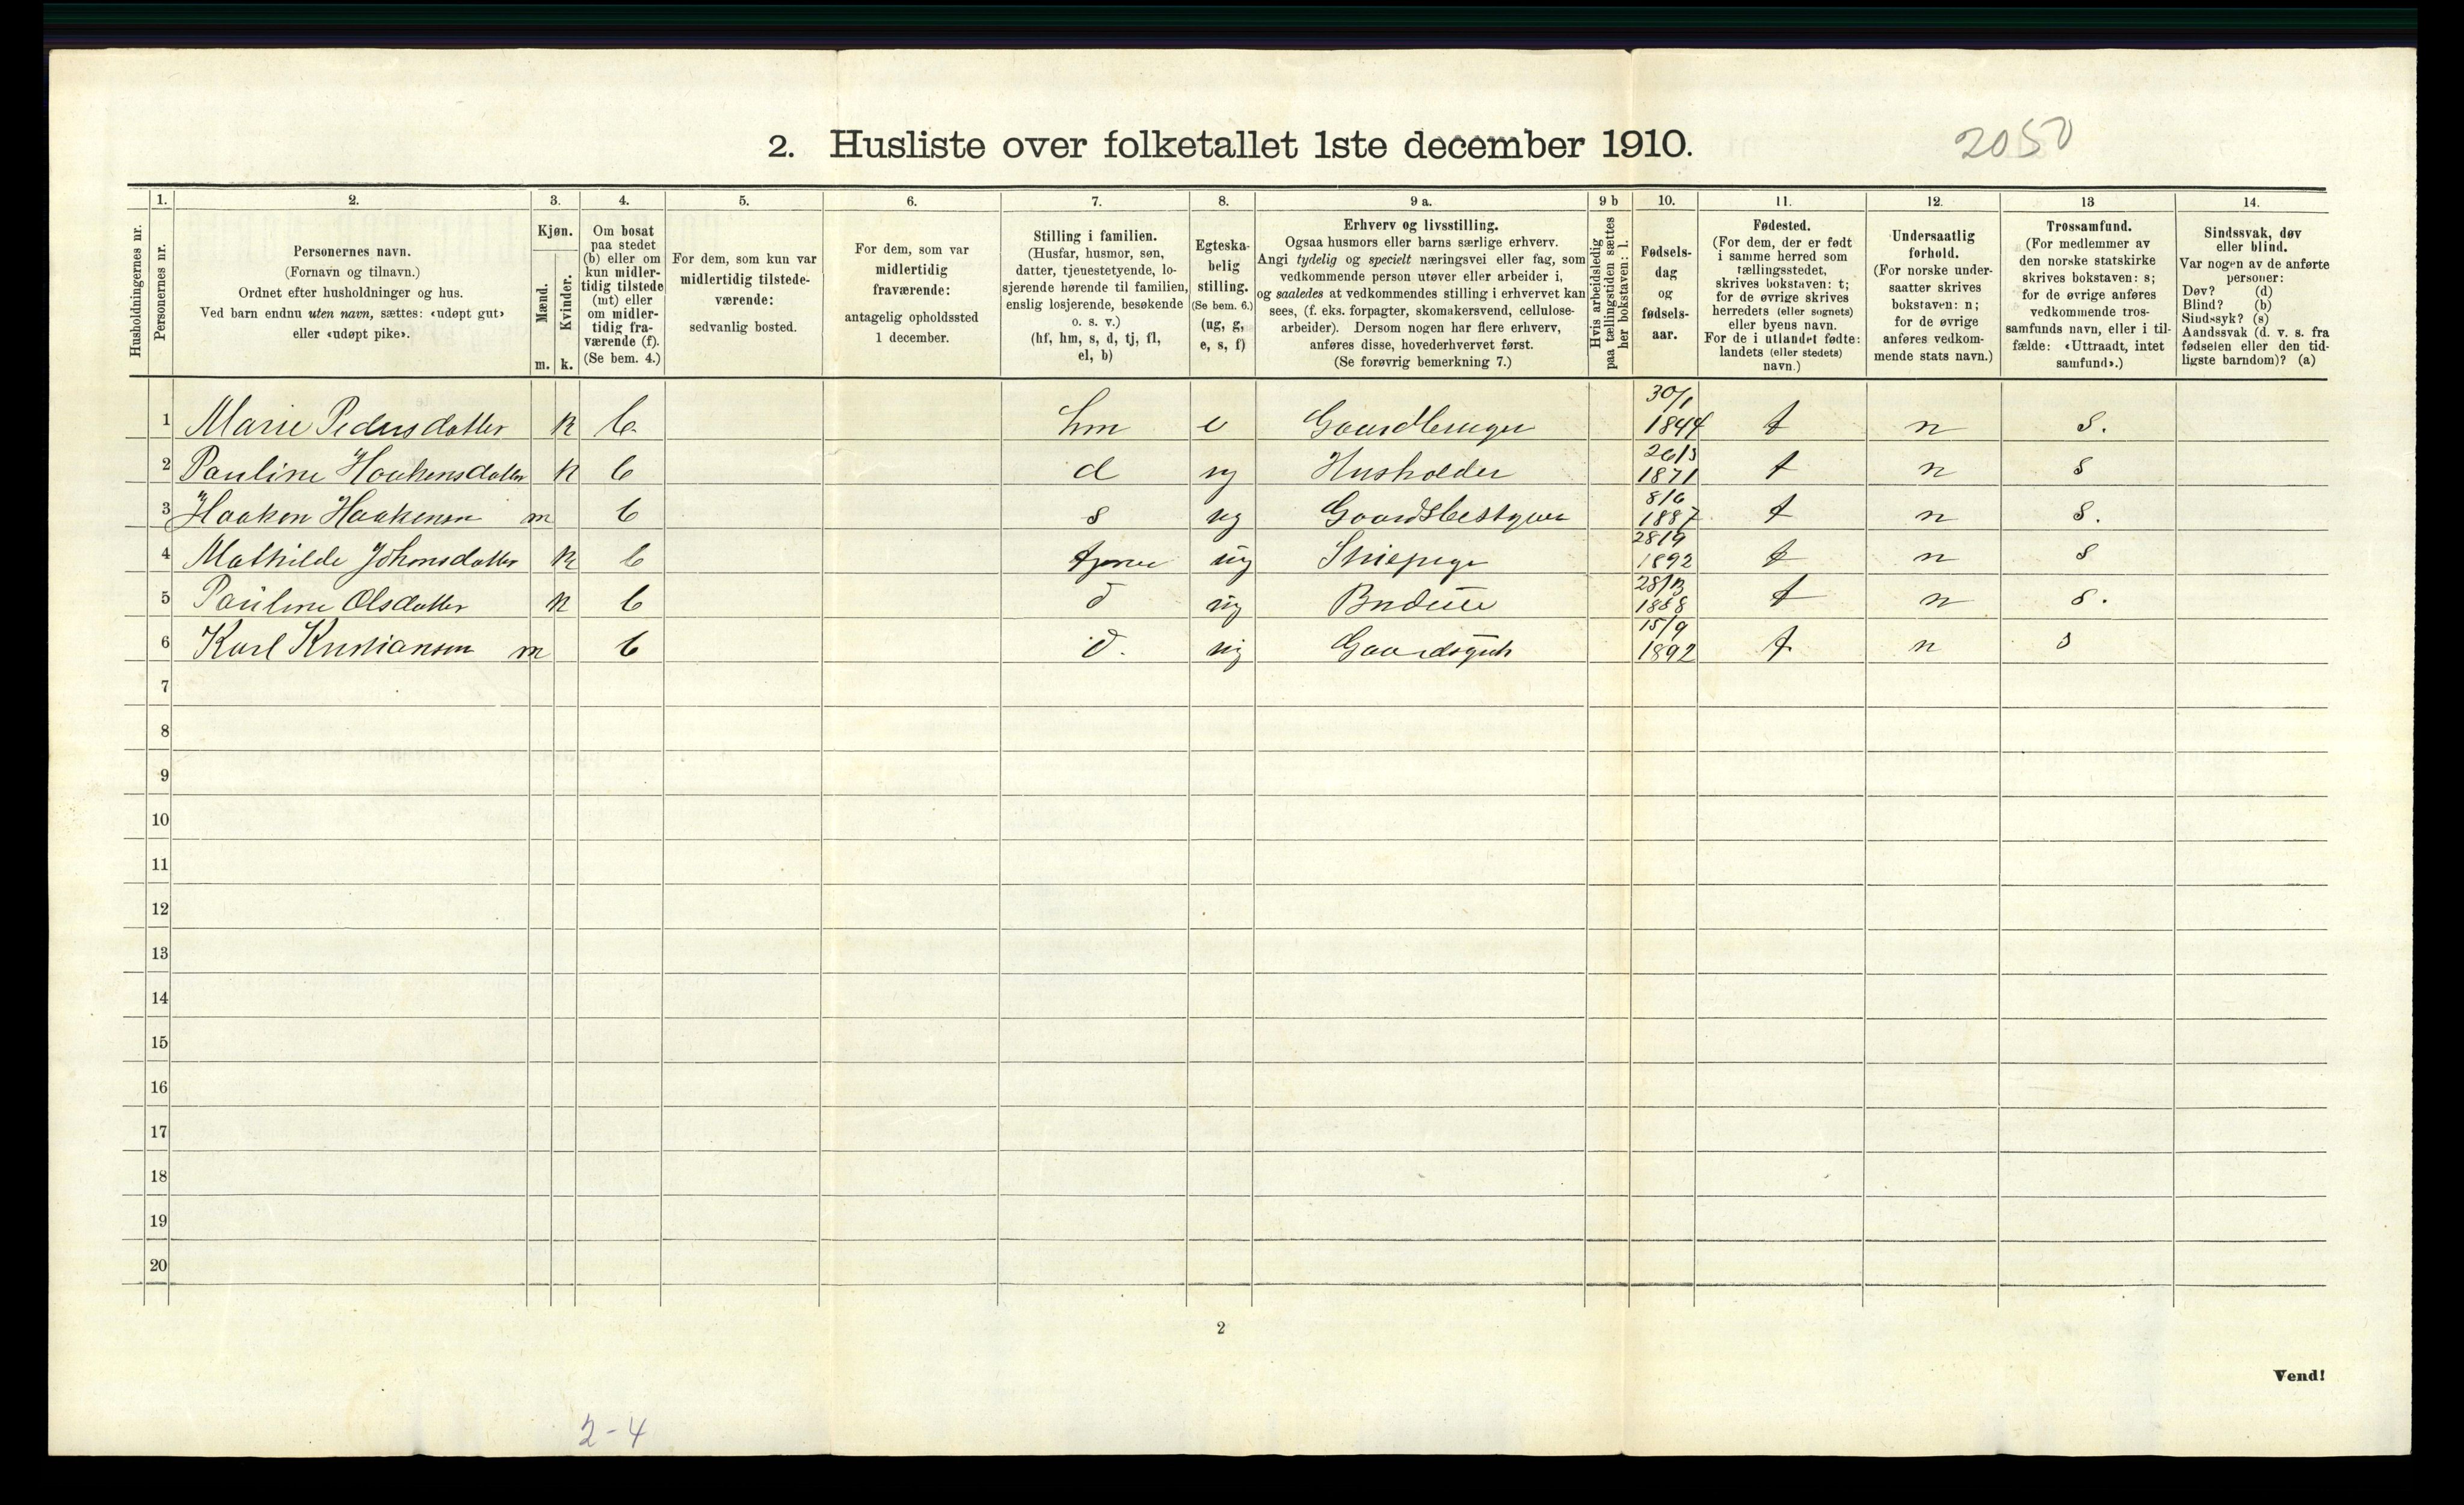 2. Husliste over folketallet 1ste december 1910.
2050
1. 2. 3. 4. 5. 6. 7. 8. 9 a. 9 b 10. 11. 12. 13 14.
Husholdningernes nr.
Personernes nr.
Personernes navn.
(Fornavn og tilnavn.)
Ordnet efter husholdninger og hus.
Ved barn endnu uten navn, sættes: «udøpt gut»
eller «udøpt pike».
Kjøn.
Mænd.
Kvinder.
m. k.
Om bosat
paa stedet
(b) eller om
kun midler-
tidig tilstede
(mt) eller
om midler-
tidig fra-
værende (f).
(Se bem. 4.)
For dem, som kun var
midlertidig tilstede-
værende:
sedvanlig bosted.
For dem, som var
midlertidig
fraværende:
antagelig opholdssted
1 december.
Stilling i familien.
(Husfar, husmor, søn,
datter, tjenestetyende, lo-
sjerende hørende til familien,
enslig losjerende, besøkende
o. s. v.)
(hf, hm, s, d, tj, fl,
el, b)
Egteska-
belig
stilling.
(Se bem. 6.)
(ug, g,
e, s, f)
Erhverv og livsstilling.
Ogsaa husmors eller barns særlige erhverv.
Angi tydelig og specielt næringsvei eller fag, som
vedkommende person utøver eller arbeider i,
og saaledes at vedkommendes stilling i erhvervet kan
sees, (f. eks. forpagter, skomakersvend, cellulose-
arbeider). Dersom nogen har flere erhverv,
anføres disse, hovederhvervet først.
(Se forøvrig bemerkning 7.)
Hvis arbeidsledig
paa tællingstiden sættes
her bokstaven: l.
Fødsels-
dag
og
fødsels-
aar.
Fødested.
(For dem, der er født
i samme herred som
tællingsstedet,
skrives bokstaven: t;
for de øvrige skrives
herredets (eller sognets)
eller byens navn.
For de i utlandet fødte:
landets (eller stedets)
navn.)
Undersaatlig
forhold.
(For norske under-
saatter skrives
bokstaven: n;
for de øvrige
anføres vedkom-
mende stats navn.)
Trossamfund.
(For medlemmer av
den norske statskirke
skrives bokstaven: s;
for de øvrige anføres
vedkommende tros-
samfunds navn, eller i til-
fælde: «Uttraadt, intet
samfund».)
Sindssvak, døv
eller blind.
Var nogen av de anførte
personer:
Døv? (d)
Blind? (b)
Sindssyk? (s)
Aandssvak (d. v. s. fra
fødselen eller den tid-
ligste barndom)? (a)
1 Marie Pedersdatter k b. hm e Gaardbruger 30/1 1844 t n s.
2 Pauline Haakensdatter k b d ug Husholder 1871 t n s
3 Haaken Haakensen m b s ug Gaardsbestyrer 8/6 1887 t n s.
4 Mathilde Johnsdatter k b ug 28/9 1892 t n s
5 Pauline Olsdatter k b d ug Budeie 1888 t n s.
6 Karl Kristiansen m b d. ug Gaardsgut 15/9 1892 t n s
7
8
9
10
11
12
13
14
15
16
17
18
19
20
2
Vend!
2-4